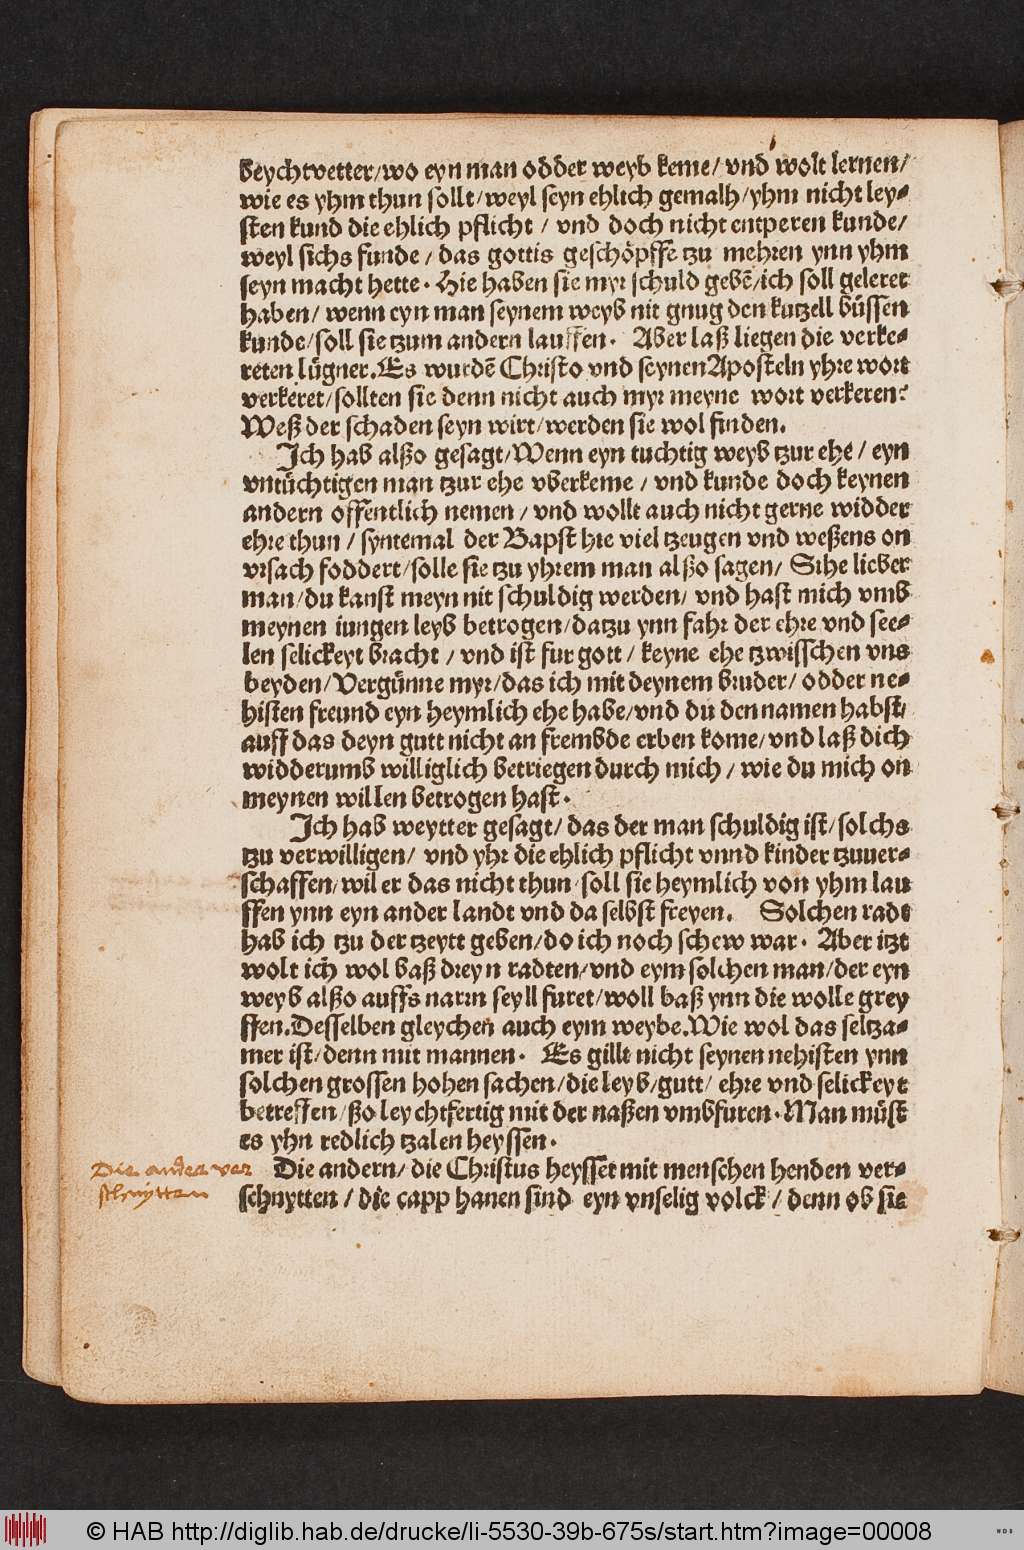 beychtvetter/wo eyn man odder weyb keme/ vnd wolt lernen/
wie es yhm thun sollt/weyl seyn ehlich gemalh/yhm nicht ley⸗
sten kund die ehlich pflicht / vnd doch nicht entperen kunde/
weyl sichs funde/ das gottis geschöpffe tzu mehren ynn yhm
seyn macht hette. Hie haben sie myr schuld gebē/ich soll geleret
haben/ wenn eyn man seynem weyb nit gnug den kutzell büssen
kunde/soll sie tzum andern lauffen. Aber laß liegen die verke⸗
reten lügner. Es wurdē Christo vnd seynen Aposteln yhre wort
verkeret/sollten sie denn nicht auch myr meyne wort verkeren?
Weß der schaden seyn wirt/werden sie wol finden.
Ich hab alßo gesagt/Wenn eyn tuchtig weyb tzur ehe/ eyn
vntüchtigen man tzur ehe vberkeme / vnd kunde doch keynen
andern offentlich nemen/ vnd wollt auch nicht gerne widder
ehre thun / syntemal der Bapst hie viel tzeugen vnd weßens on
vrsach foddert/solle sie tzu yhrem man alßo sagen/ Sihe lieber
man/du kanst meyn nit schuldig werden/ vnd hast mich vmb
meynen iungen leyb betrogen/datzu ynn fahr der ehre vnd see⸗
len selickeyt bracht / vnd ist fur gott/ keyne ehe tzwisschen vns
beyden/Vergünne myr/das ich mit deynem bruder/ odder ne⸗
histen freund eyn heymlich ehe habe/vnd du den namen habst/
auff das deyn gutt nicht an frembde erben kome/vnd laß dich
widderumb williglich betriegen durch mich / wie du mich on
meynen willen betrogen hast.
Ich hab weytter gesagt/ das der man schuldig ist/solchs
tzu verwilligen/ vnd yhr die ehlich pflicht vnnd kinder tzuuer⸗
schaffen/wil er das nicht thun/soll sie heymlich von yhm lau
ffen ynn eyn ander landt vnd da selbst freyen. Solchen radt
hab ich tzu der tzeytt geben/do ich noch schew war. Aber itzt
wolt ich wol baß dreyn radten/vnd eym solchen man/der eyn
weyb alßo auffs narrn seyll furet/woll baß ynn die wolle grey
ffen. Desselben gleychen auch eym weybe. Wie wol das seltza⸗
mer ist/denn mit mannen. Es gillt nicht seynen nehisten ynn
solchen grossen hohen sachen/die leyb/gutt/ ehre vnd selickeyt
betreffen/ßo leychtfertig mit der naßen vmbfuren. Man müst
es yhn redlich tzalen heyssen.
Die ander ver
schnytten
Die andern/ die Christus heysset mit menschen henden ver⸗
schnytten / die capp hanen sind eyn vnselig volck / denn ob sie
© HAB http://diglib.hab.de/drucke/li-5530-39b-675s/start.htm?image=00008